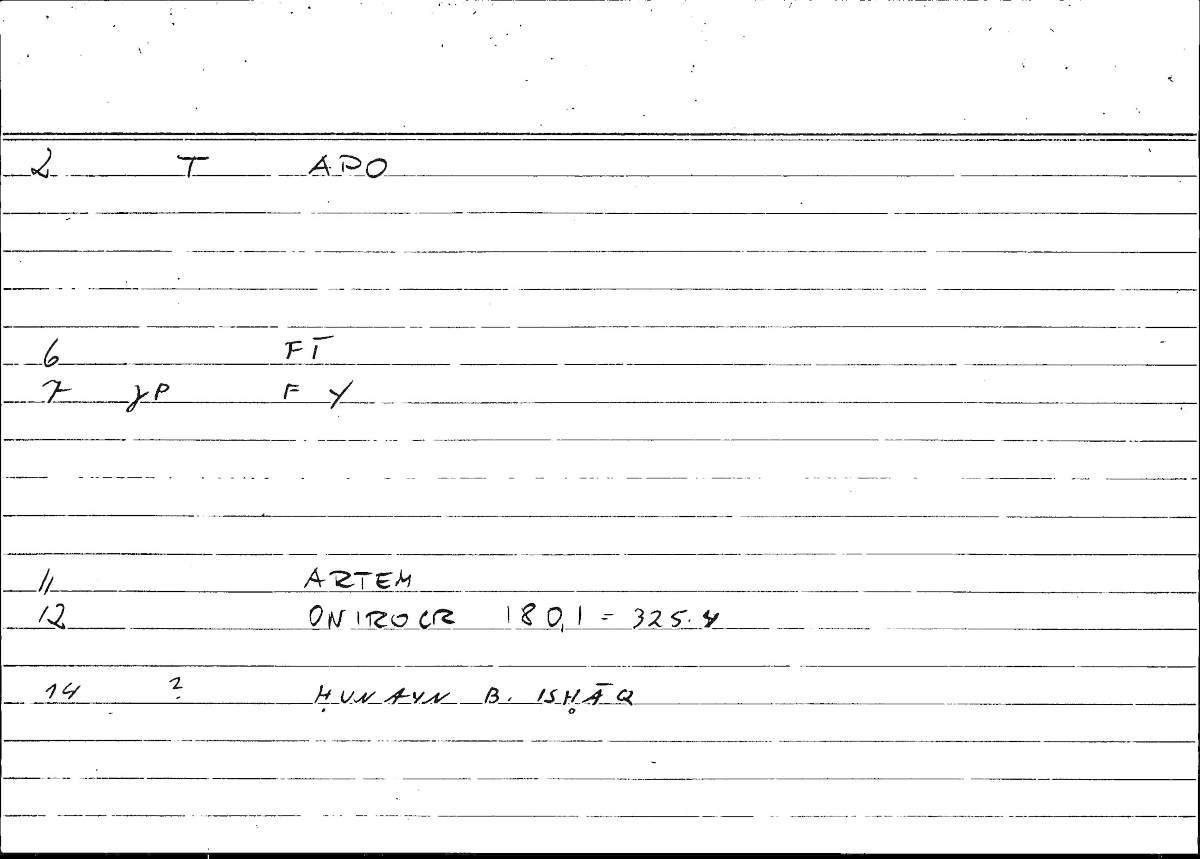 2 T APO
6 FĪ
7 γP F Y
11 ARTEM
12 ONIROCR 180,1 = 325.4
14 ? ḤUNAYN B. ISḤĀQ